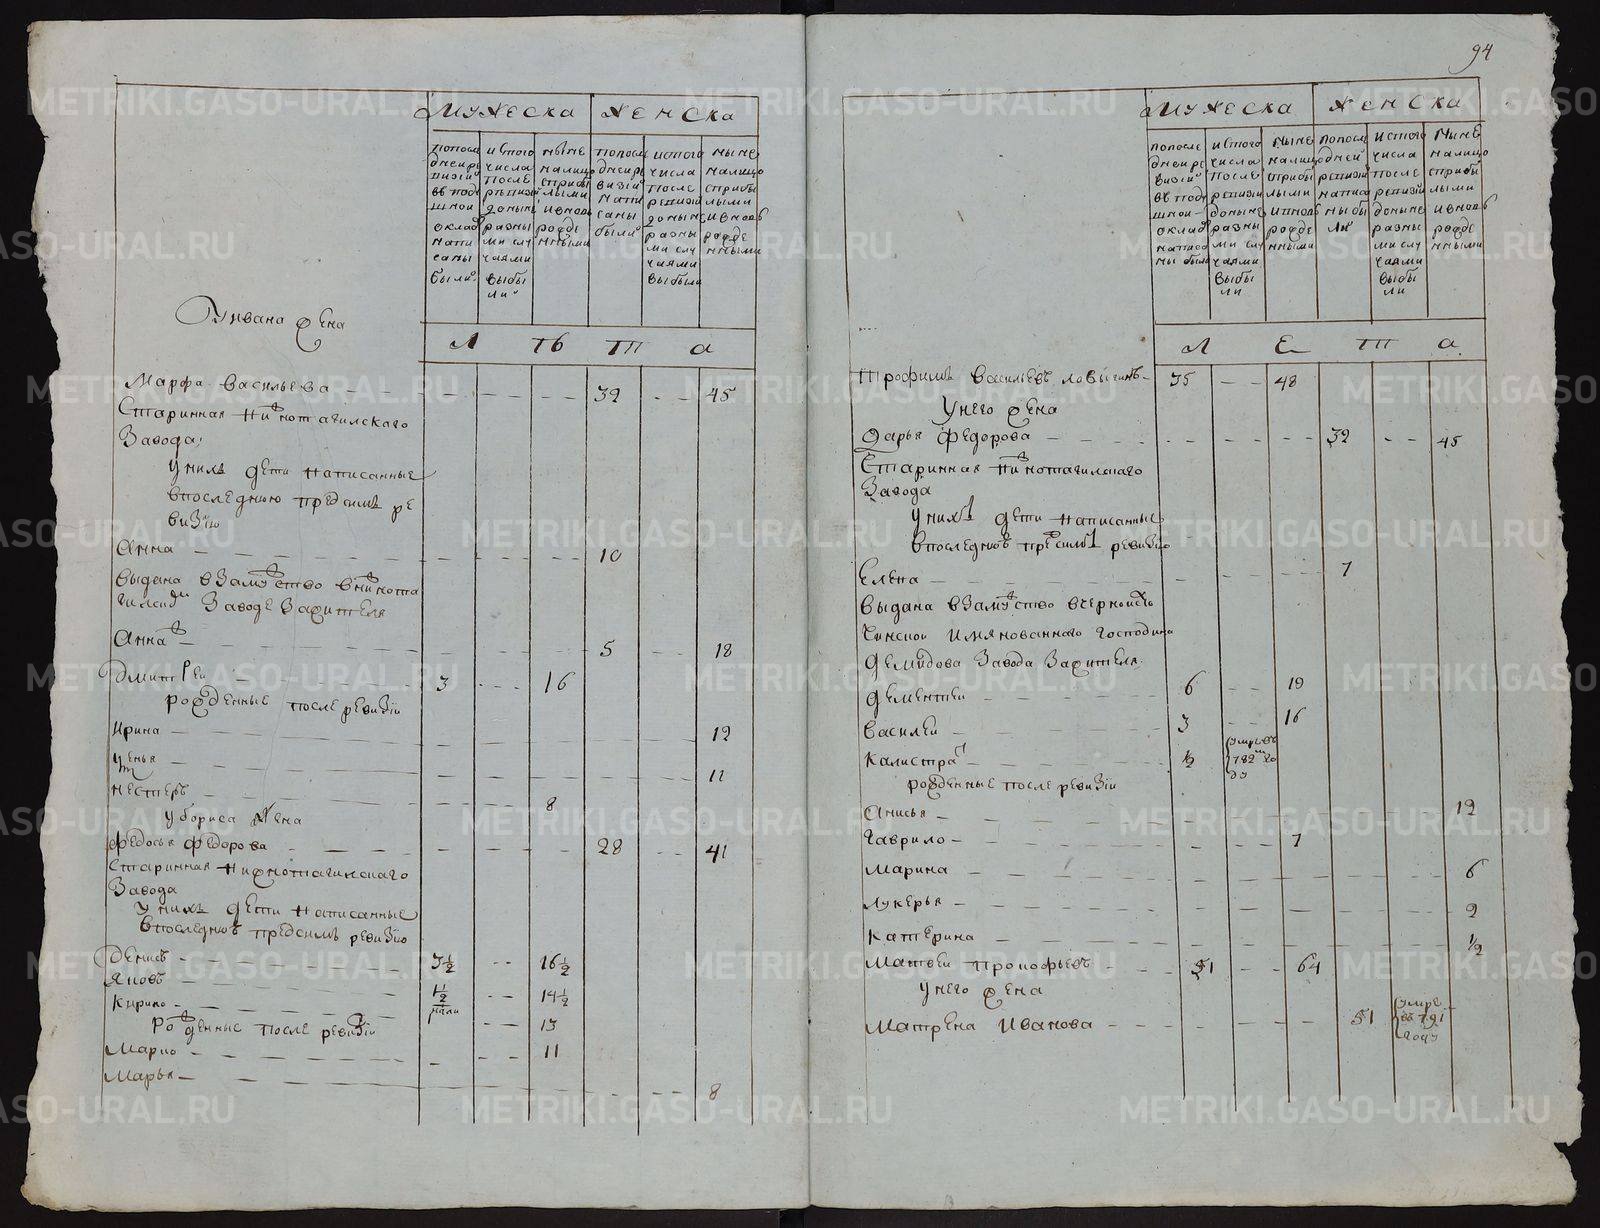 94
Мужеска Женска
попосл
дней ре
визіи
въ поду
шной
окладъ
напи
саны
были
исъ того
числа
после
ревизіи
доныне
разны
ми слу
чаями
выбы
ли
ныне
налицо
сприбы
лыми
ивновь
рожде
нными
попосл
дней ре
визіи
напи
саны
были
исъ того
числа
после
ревизіи
доныне
разны
ми слу
чаями
выбыли
ныне
налицо
сприбы
лыми
ивновь
рожде
нными
Л Т В Т П А
У ивана жена
Марфа васильева 39 45
Старинная Нижнотагилскаго
Завода
У нихъ дети написанные
впоследнюю предсимъ ре
визію
Анна 10
выдана взамужство внижнота
гилскомъ Заводе Зажителя
Анна 5 18
Дмитрей 3 16
рожденные после ревизіи
Ирина 12
11
Нестеръ 8
У бориса жена
Федосья Федорова 28 41
Старинная Нижнотагилскаго
Завода
У нихъ дети написанные
впоследнюю предсимъ ревизію
Денисъ 3½ 16½
Яковъ 1½ 14½
Кирило 13
рожденные после ревизіи
Марко 11
Марья 8
Мужеска Женска
попосле
дней ре
визіи
въ поду
шной
окладъ
написа
ны были
исъ того
числа
после
ревизіи
доныне
разны
ми слу
чаями
выбы
ли
ныне
налицо
сприбы
лыми
ивновь
рожде
нными
попосле
дней
ревизіи
написа
ны бы
ли
исъ того
числа
после
ревизіи
доныне
разны
ми слу
чаями
выбы
ли
ныне
налицо
сприбы
лыми
ивновь
рожде
нными
Л Е Т П А
Трофимъ васильевъ ловыгинъ 35 48
У него жена
Дарья Федорова 32 45
Старинная Нижнотагилскаго
Завода
У нихъ дети написанные
впоследнюю предсимъ ревизію
Елена 7
выдана взамужство вчерноисто
чинской имянованнаго господина
Демидова Завода Зажителя
Дементей 6 19
Василей 3 16
Калистратъ ½ умре въ
782м го
ду
рожденные после ревизіи
Анисья 12
Гаврило 7
Марина 6
Лукерья 2
Катерина ½
Матвей Прокофьевъ 51 64
У него жена
Матрена Иванова 51 умре
въ 791
году
METRIKI.GASO-URAL.RU